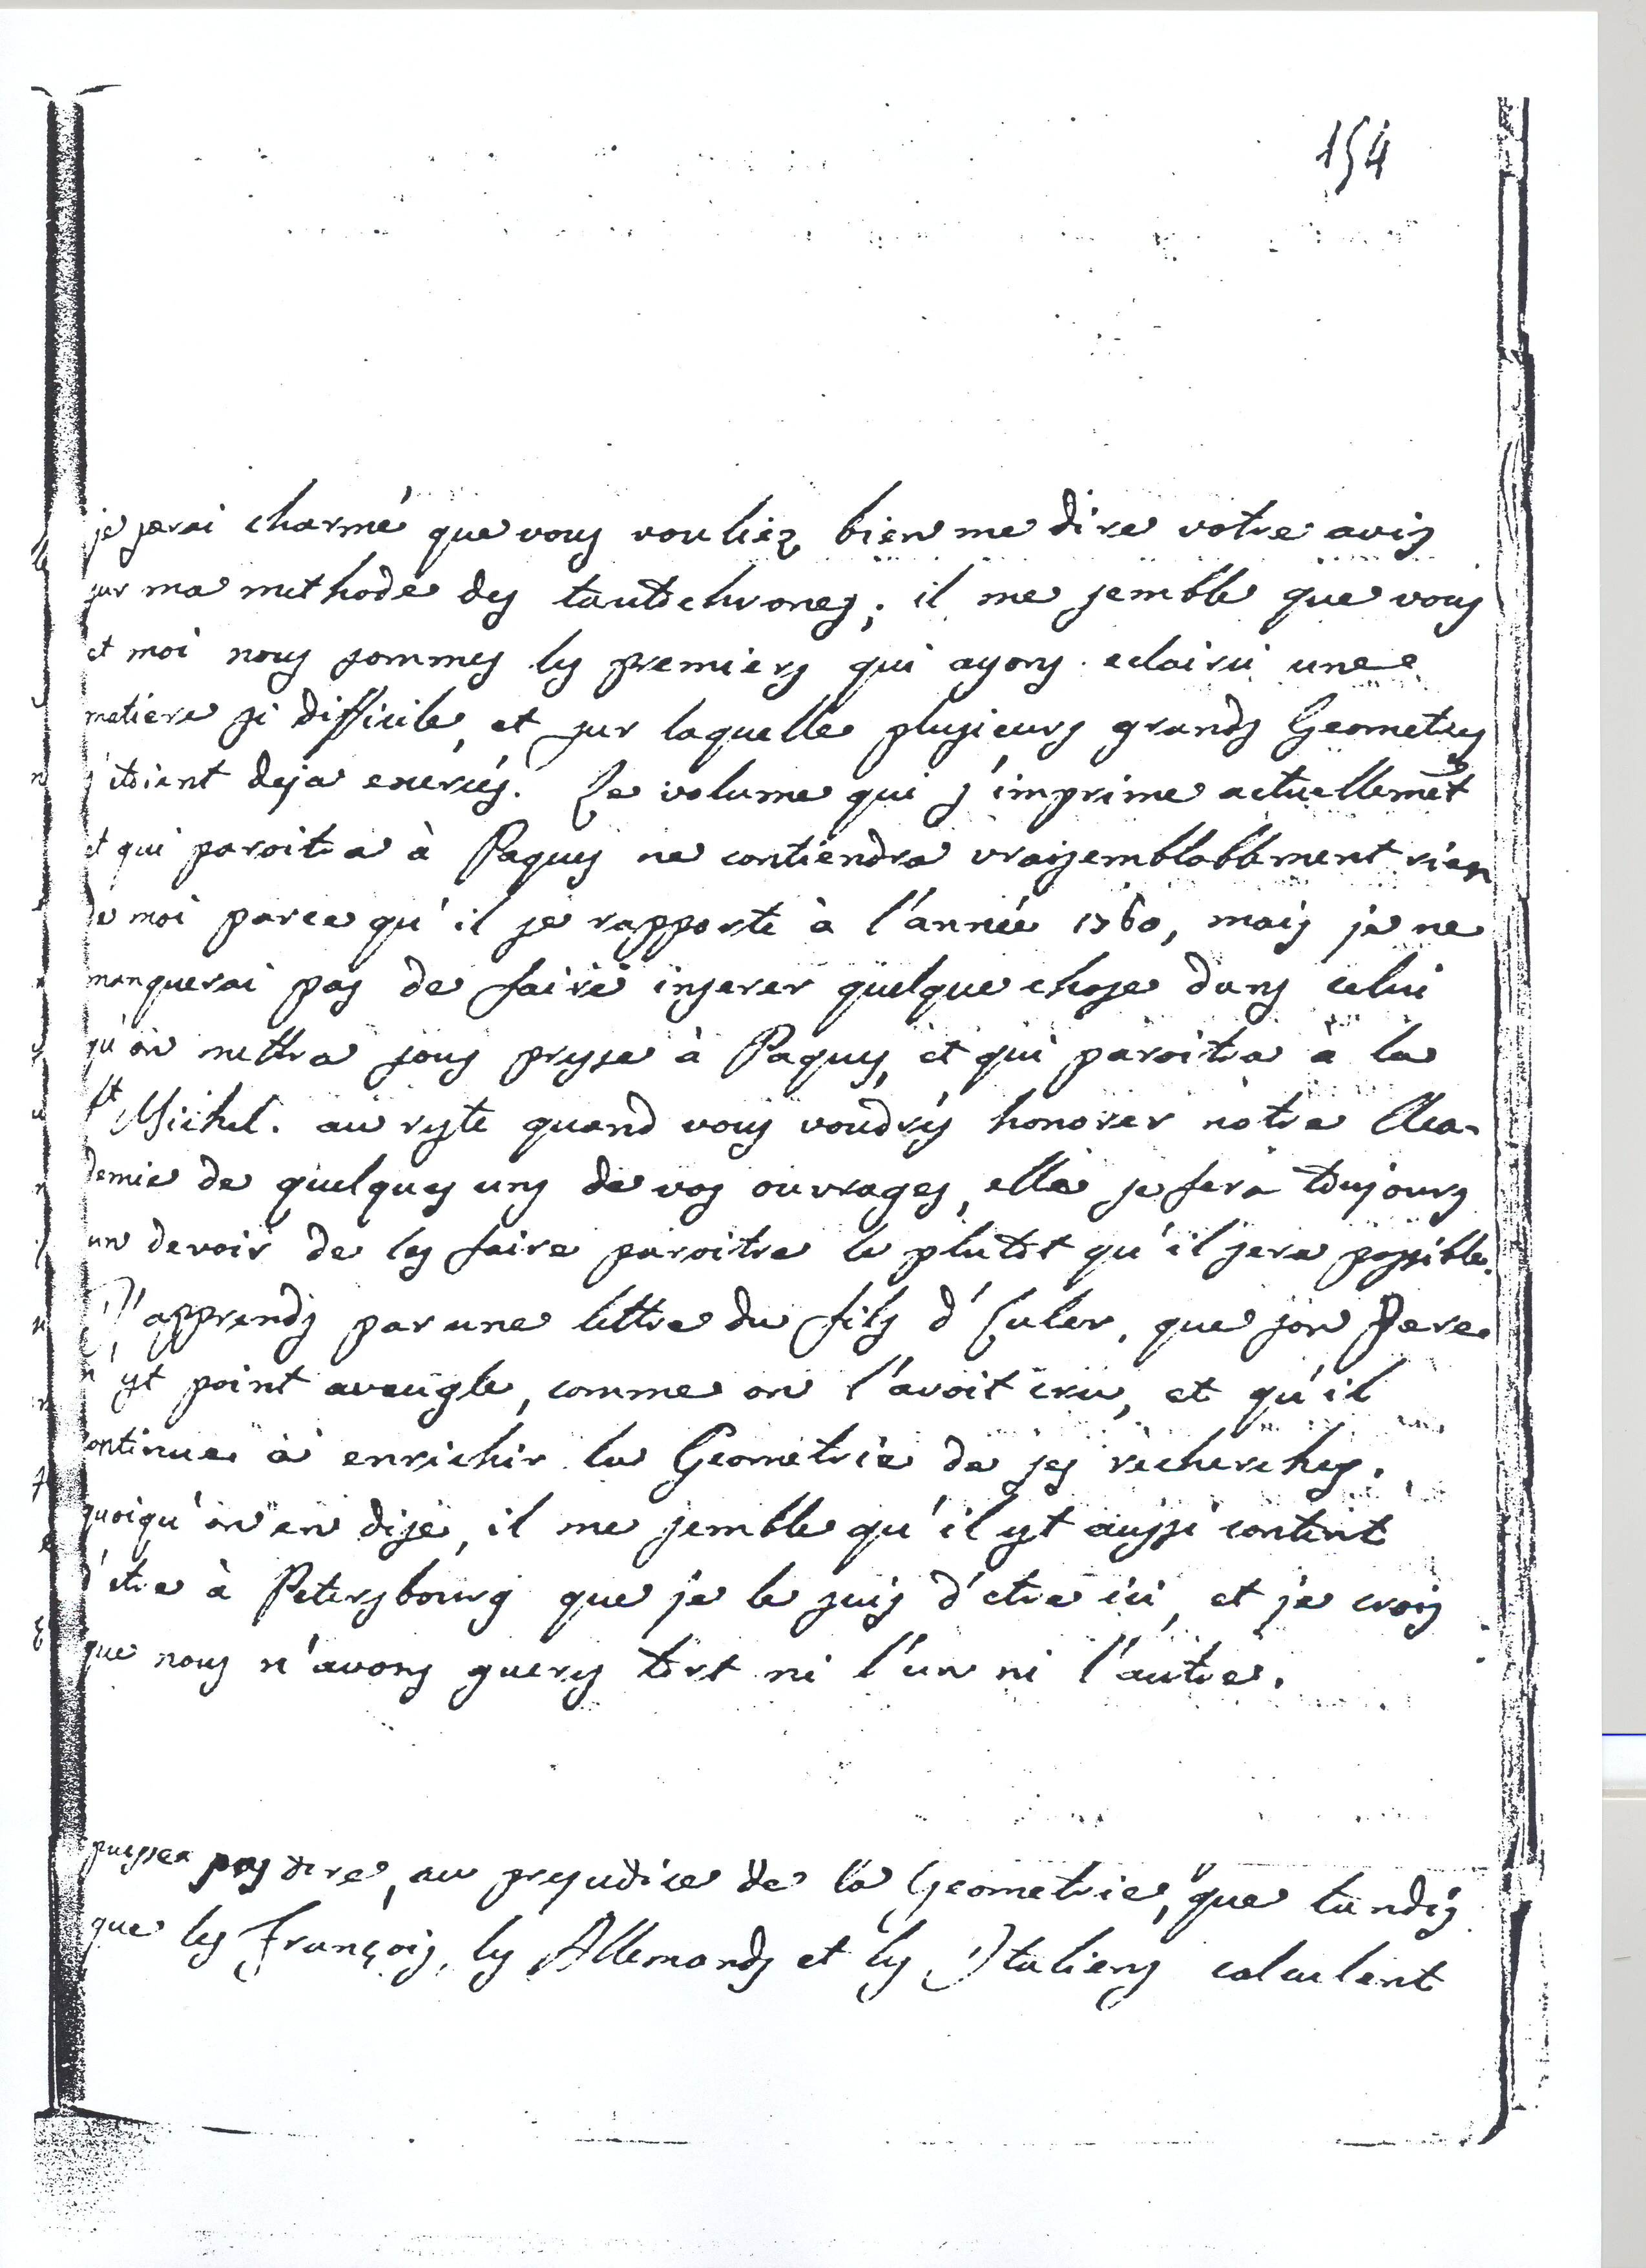 154
je serai charmé que vous vouliez bien me dire votre avis
sur ma methode des tautochrones; il me semble que vous
et moi nous sommes les premiers qui ayons eclairci une
matiere si difficile, et sur laquelle plusieurs grands Geometres
s'etoient deja exercés. Le volume qui s'imprime actuellemēt
et qui paroitra à Paques ne contiendra vraisemblablement rien
de moi parce qu'il se rapporte à l'année 1760, mais je ne
manquerai pas de faire inserer quelque chose dans celui
qu'on mettra sous presse à Paques, et qui paroitra a la
St Michel. au reste quand vous voudrés honorer nôtre Aca-
demie de quelques uns de vos ouvrages, elle se fera toujours
un devoir de les faire paroitre le plutôt qu'il sera possible.
J'apprends par une lettre du fils d'Euler, que son Pere
n'est point aveugle, comme on l'avoit cru, et qu'il
continue à enrichir la Geometrie de ses recherches.
quoiqu'on en dise, il me semble qu'il est aussi content
d'etre à Petersbourg que je le suis d'etre ici, et je crois
que nous n'avons gueres tort ni l'un ni l'autre.
puisse pas dire, au prejudice de la Geometrie, que tandis
que les François, les Allemands et les Italiens calculent